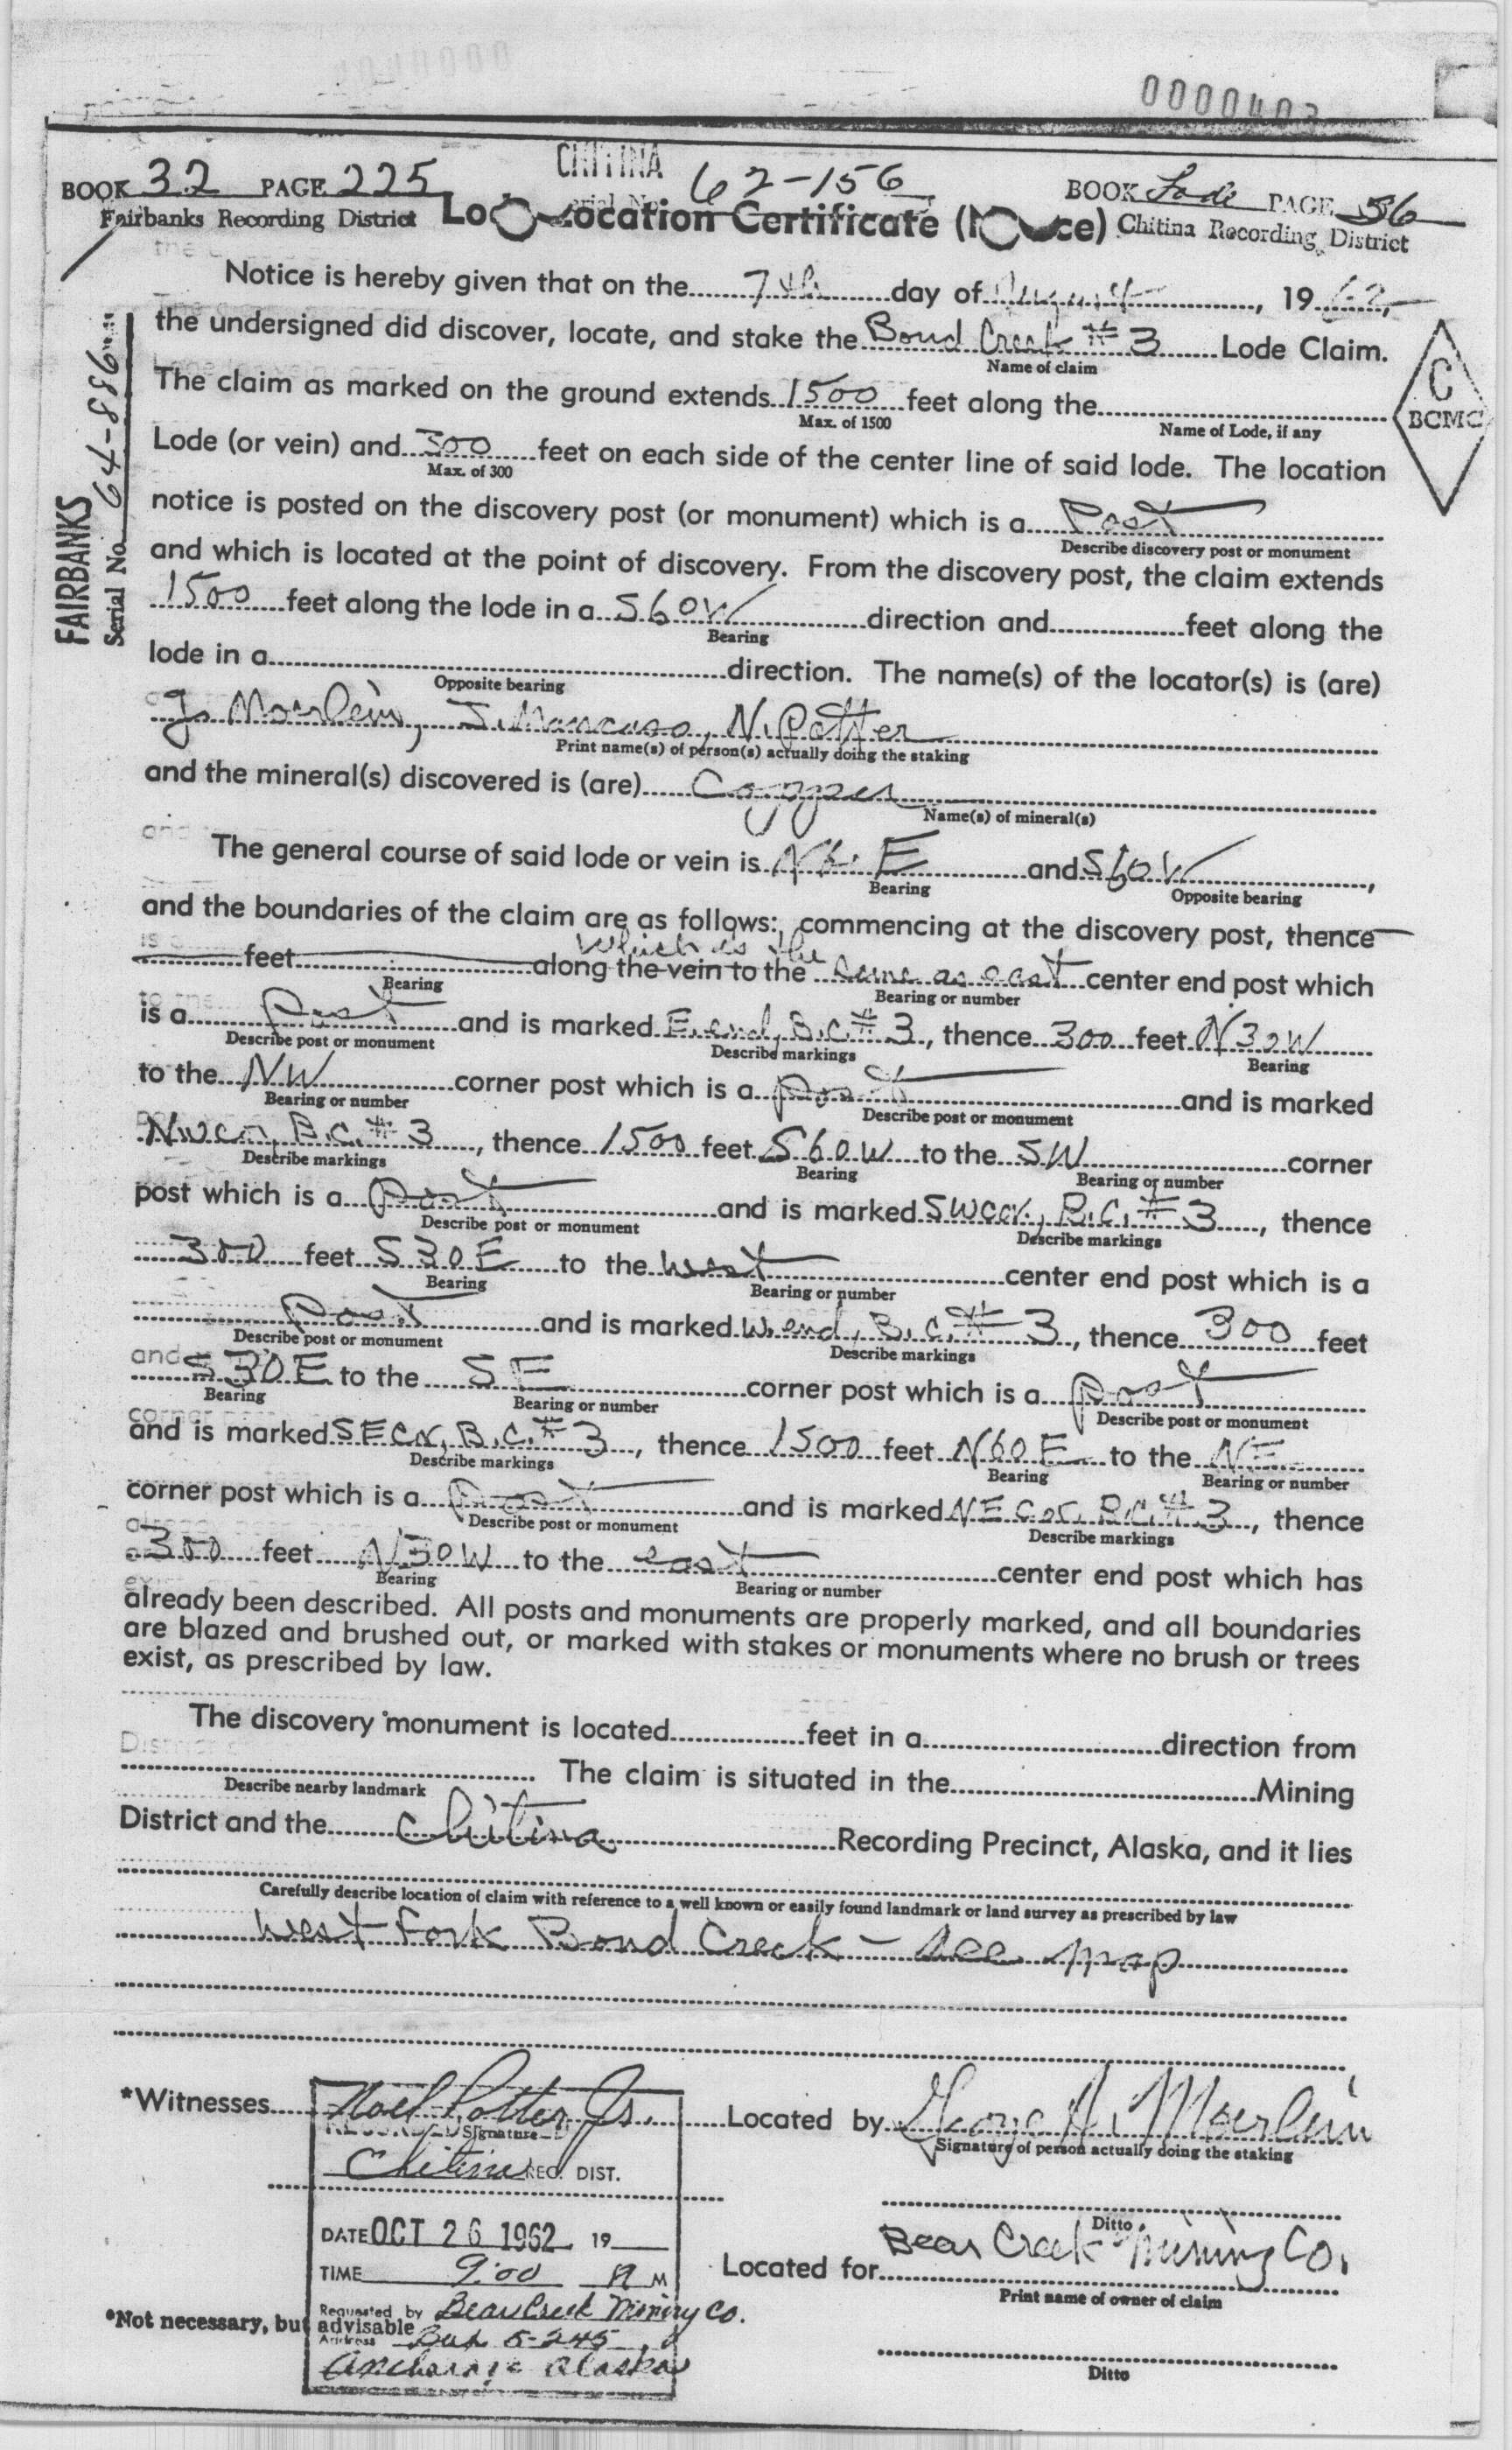 0000403
CHITINA
BOOK 32 PAGE 225 62-156 BOOK Lode PAGE 56
Fairbanks Recording District Location Certificate Chitina Recording District
Notice is hereby given that on the 7th day of August, 19 62,
the undersigned did discover, locate, and stake the Bond Creek #3 Lode Claim.
Name of claim
The claim as marked on the ground extends 1500 feet along the
Max. of 1500 Name of Lode, if any
C
BCMC
Lode (or vein) and 300 feet on each side of the center line of said lode. The location
Max. of 300
notice is posted on the discovery post (or monument) which is a Post
Describe discovery post or monument
and which is located at the point of discovery. From the discovery post, the claim extends
1500 feet along the lode in a S60W direction and feet along the
Bearing
lode in a direction. The name(s) of the locator(s) is (are)
Opposite bearing
FAIRBANKS
Serial No. 64-886
G. Moerlein, J. Mancuso, N. Potter
Print name(s) of person(s) actually doing the staking
and the mineral(s) discovered is (are) Copper
Name(s) of mineral(s)
The general course of said lode or vein is N60E and S60W,
Bearing Opposite bearing
and the boundaries of the claim are as follows: commencing at the discovery post, thence
which is the
feet along the vein to the same as east center end post which
Bearing Bearing or number
is a Post and is marked E. end, B.C. #3, thence 300 feet N30W
Describe post or monument Describe markings Bearing
to the NW corner post which is a post and is marked
Bearing or number Describe post or monument
NW cor, B.C. #3, thence 1500 feet S60W to the SW corner
Describe markings Bearing Bearing or number
post which is a Post and is marked SW cor., B.C. #3, thence
Describe post or monument Describe markings
300 feet S30E to the west center end post which is a
Bearing Bearing or number
Post and is marked W. end, B.C. #3, thence 300 feet
Describe post or monument Describe markings
S30E to the SE corner post which is a post
Bearing Bearing or number Describe post or monument
and is marked SE cor, B.C. #3, thence 1500 feet N60E to the NE
Describe markings Bearing Bearing or number
corner post which is a Post and is marked NE cor. B.C. #3, thence
Describe post or monument Describe markings
300 feet N30W to the east center end post which has
Bearing Bearing or number
already been described. All posts and monuments are properly marked, and all boundaries
are blazed and brushed out, or marked with stakes or monuments where no brush or trees
exist, as prescribed by law.
The discovery monument is located feet in a direction from
The claim is situated in the Mining
Describe nearby landmark
District and the Chitina Recording Precinct, Alaska, and it lies
Carefully describe location of claim with reference to a well known or easily found landmark or land survey as prescribed by law
West Fork Bond Creek - see map
*Witnesses Noel Potter Jr. Located by George A. Moerlein
RECORDED Signature Signature of person actually doing the staking
Chitina REC. DIST.
Ditto
DATE OCT 26 1962 19
Bear Creek Mining Co.
TIME 9:00 A M Located for
Print name of owner of claim
Requested by Bear Creek Mining Co.
*Not necessary, but advisable
Address Box 5-245
Anchorage Alaska
Ditto